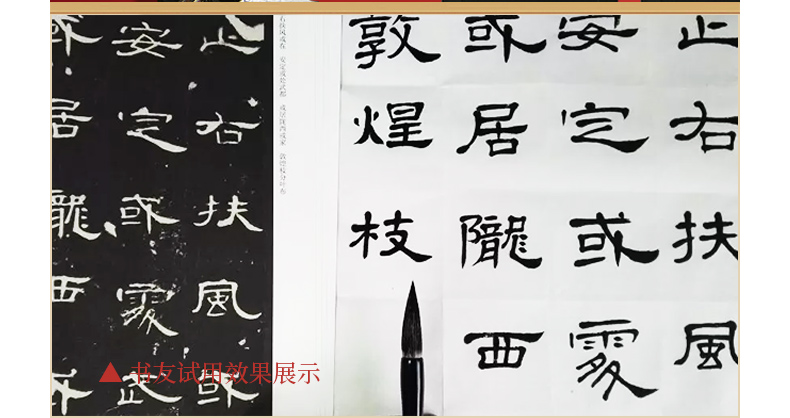 止右扶風或
安定或處武
或居隴西或
右扶风或在 安定或处武都 或居陇西或家 敦煌枝分叶布
止右扶風
安定或處
或居隴西
敦煌枝
▲书友试用效果展示